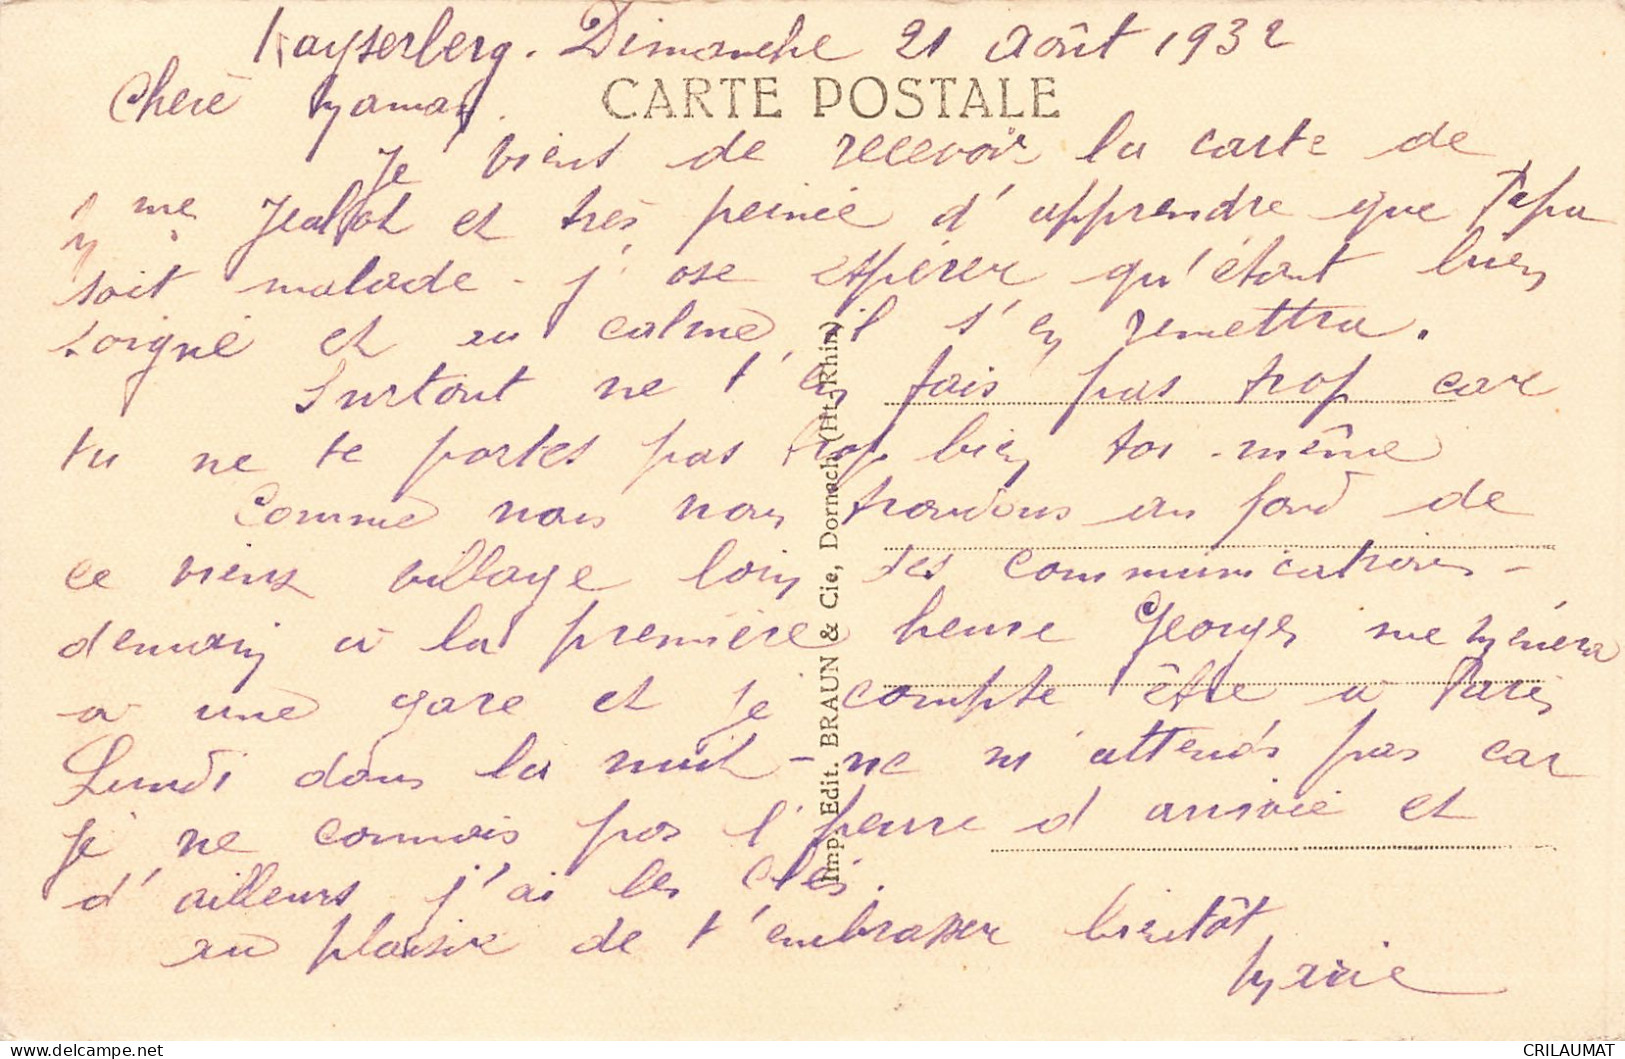 Kaysersberg. Dimanche 21 Août 1932
CARTE POSTALE
Chère Maman.
Je viens de recevoir la carte de
Mme et très peinée d'apprendre que Papa
soit malade - j'ose espérer qu'étant bien
soigné et au calme, il s'en remettra.
Surtout ne t'en fais pas trop car
tu ne te portes pas trop bien toi-même
Comme nous nous trouvons au fond de
ce vieux village loin des communications -
demain à la première heure Georges me mènera
à une gare et je compte être à Paris
Lundi dans la nuit - ne m'attends pas car
je ne connais pas l'heure d'arrivée et
d'ailleurs j'ai les clés.
au plaisir de t'embrasser bientôt
Marie
Imp. Edit. BRAUN & Cie, Dornach (Ht-Rhin)
CRILAUMAT